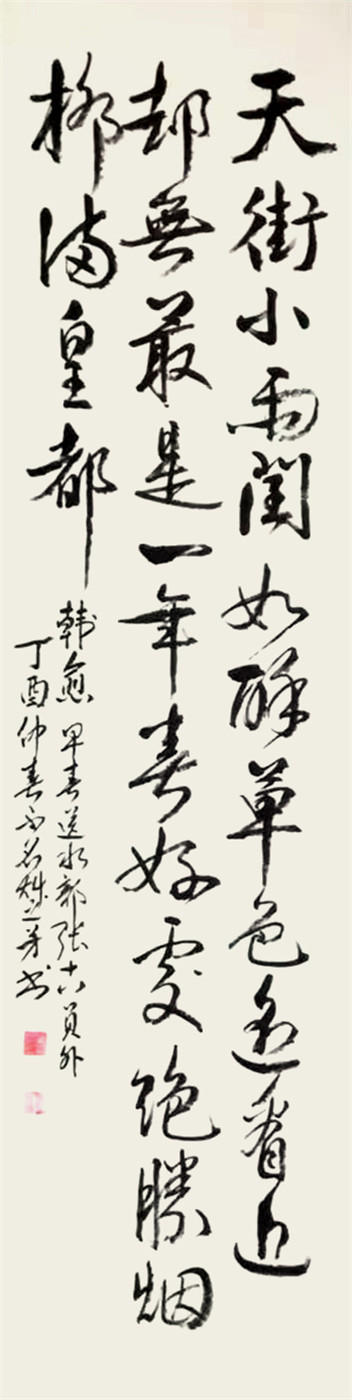 天街小雨閏如酥草色遥看近
却無最是一年春好處绝勝烟
柳满皇都
韓愈 早春送水部张十八員外
丁酉仲春 书